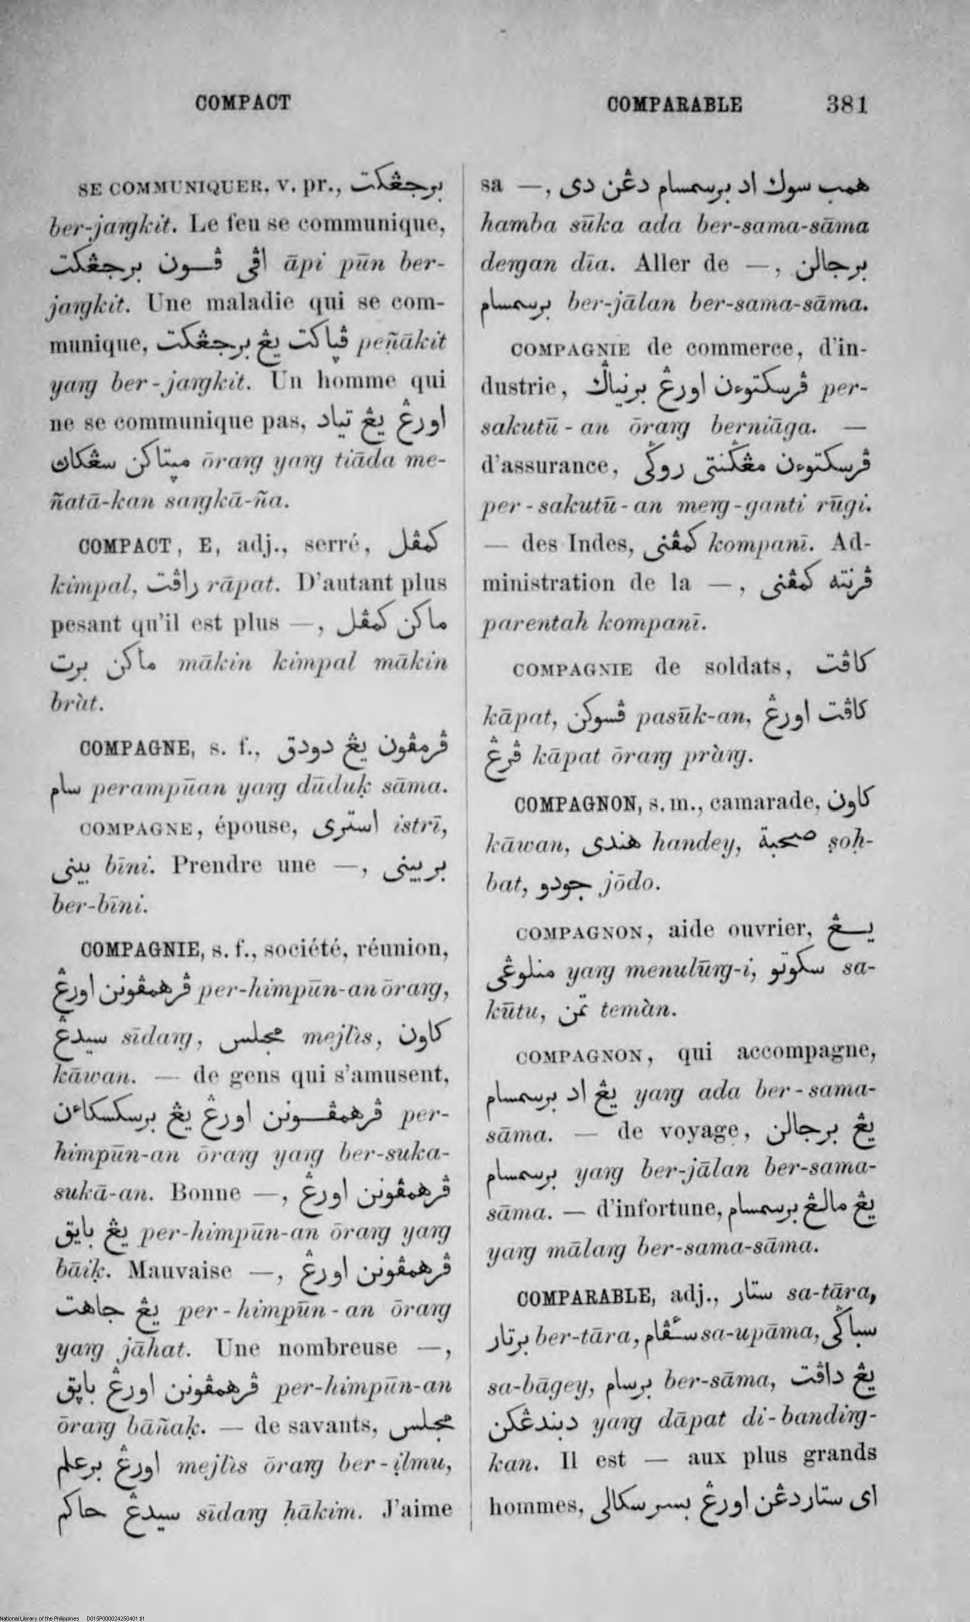 COMPACT
COMPARABLE 381
SE COMMUNIQUER, v. pr., برجڠكت
ber-jaŋkit. Le feu se communique,
اڤي ڤون برجڠكت āpi pūn ber-
jaŋkit. Une maladie qui se com-
munique, ڤڽاكت يڠ برجڠكت peñākit
yaŋ ber-jaŋkit. Un homme qui
ne se communique pas, اورڠ يڠ تياد
مڽتاكن سڠكاڽ ōraŋ yaŋ tiāda me-
ñatā-kan saŋkā-ña.
COMPACT, E, adj., serré, كمڤل
kimpal, راڤت rāpat. D'autant plus
pesant qu'il est plus —, ماكن كمڤل
ماكن برت mākin kimpal mākin
bràt.
COMPAGNE, s. f., ڤرمڤون يڠ دودق
سام perampūan yaŋ dūduḳ sāma.
COMPAGNE, épouse, استري istrī,
بيني bīni. Prendre une —, بربيني
ber-bīni.
COMPAGNIE, s. f., société, réunion,
ڤرهمڤونن اورڠ per-himpūn-an ōraŋ,
سيدڠ sīdaŋ, مجلس mejlìs, كاون
kāwan. — de gens qui s'amusent,
ڤرهمڤونن اورڠ يڠ برسكسكاءن per-
himpūn-an ōraŋ yaŋ ber-suka-
sukā-an. Bonne —, ڤرهمڤونن اورڠ
يڠ بايق per-himpūn-an ōraŋ yaŋ
bāiḳ. Mauvaise —, ڤرهمڤونن اورڠ
يڠ جاهت per-himpūn-an ōraŋ
yaŋ jāhat. Une nombreuse —,
ڤرهمڤونن اورڠ باڽق per-himpūn-an
ōraŋ bāñaḳ. — de savants, مجلس
اورڠ برعلم mejlìs ōraŋ ber-ịlmu,
سيدڠ حاكم sīdaŋ ḥākim. J'aime
sa —, همب سوك اد برسمسام دڠن دي
hamba sūka ada ber-sama-sāma
deŋan dīa. Aller de —, برجالن
برسمسام ber-jālan ber-sama-sāma.
COMPAGNIE de commerce, d'in-
dustrie, ڤرسكتوءن اورڠ برنياݢ per-
sakutū-an ōraŋ berniāga. —
d'assurance, ڤرسكتوءن مڠݢنتي روݢي
per-sakutū-an meŋ-ganti rūgi.
— des Indes, كمڤني kompanī. Ad-
ministration de la —, ڤرنته كمڤني
parentah kompanī.
COMPAGNIE de soldats, كاڤت
kāpat, ڤسوكن pasūk-an, كاڤت اورڠ
ڤرڠ kāpat ōraŋ pràŋ.
COMPAGNON, s. m., camarade, كاون
kāwan, هندي handey, صحبة ṣoḥ-
bat, جودو jōdo.
COMPAGNON, aide ouvrier, يڠ
منلوڠي yaŋ menulūŋ-i, سكوتو sa-
kūtu, تمن temàn.
COMPAGNON, qui accompagne,
يڠ اد برسمسام yaŋ ada ber-sama-
sāma. — de voyage, يڠ برجالن
برسمسام yaŋ ber-jālan ber-sama-
sāma. — d'infortune, يڠ مالڠ برسمسام
yaŋ mālaŋ ber-sama-sāma.
COMPARABLE, adj., ستار sa-tāra,
برتار ber-tāra, سأڤام sa-upāma, سباݢي
sa-bāgey, برسام ber-sāma, يڠ داڤت
دبندڠكن yaŋ dāpat di-bandiŋ-
kan. Il est — aux plus grands
hommes, اي ستاردڠن اورڠ بسرسكالي
National Library of the Philippines